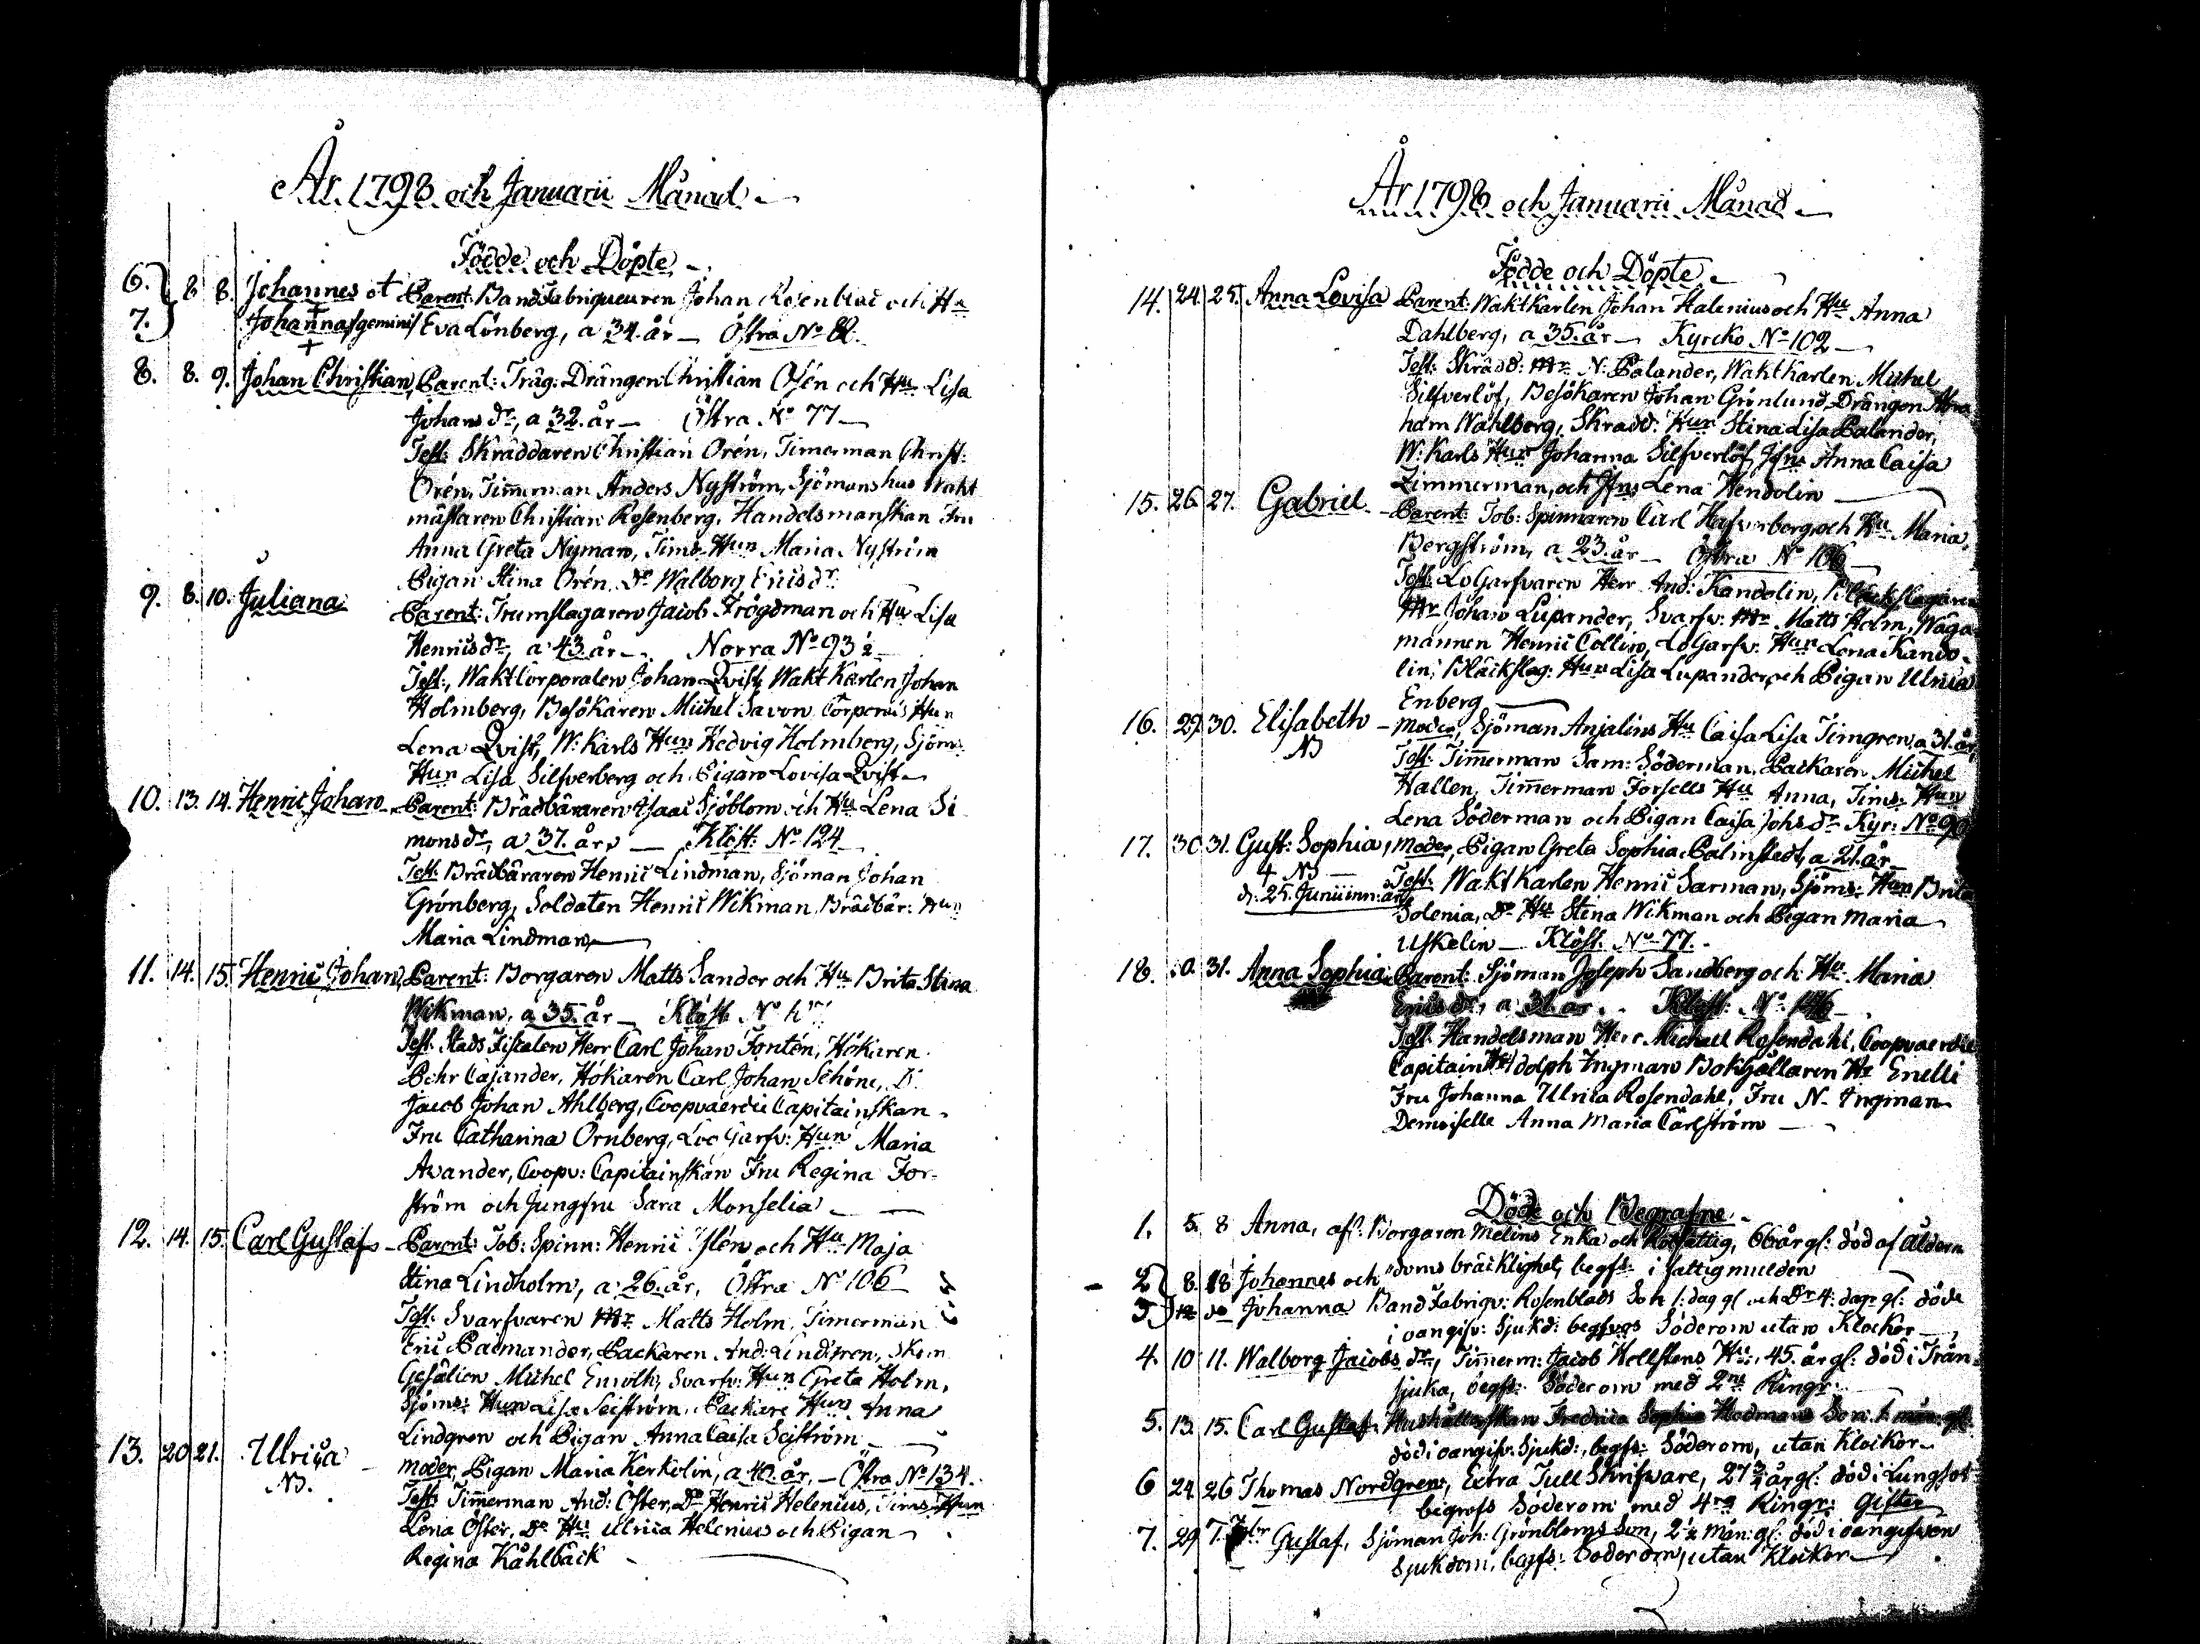 År 1798 och Januarii Månad
Födde och Döpte
6. 8 8. Johannes ot Parent: Bandfabriqueuren Johan Rosenblad och Hu
7. Johanna /gemini/ Eva Lönberg, a 34. år Östra No 8
8. 8. 9. Johan Christian, Parent: Träg: Drängen Christian Osén och Hu Lisa
Johans dr, a 32. år Östra No 77
Test: Skräddaren Christian Orén, Timerman Christ:
Orén, Timerman Anders Nyström, Sjömanshus Wakt
mästaren Christian Rosenberg, Handelsmanskan Fru
Anna Greta Nyman, Tims Hun Maria Nyström
Pigan Stina Orén Do Walborg Erics dr
9. 8. 10. Juliana Parent: Trumslagaren Jacob Frögdman och Hu Lisa
Henrics dr, a 43. år Norra No 93 ½
Test:, Wakt Corporalen Johan Qvist, Wakt Karlen Johan
Holmberg, Besökaren Michel Savon Corperals Hun
Lena Qvist, W: Karls Hun Hedvig Holmberg, Sjöm:
Hun Lisa Silfverberg och Pigan Lovisa Qvist
10. 13. 14. Henric Johan Parent: Bräd bäraren Isaac Sjöblom och Hu Lena Si
mons dr, a 37. år, Klöst: No 124
Test: Brädbäraren Henric Lindman, Sjöman Johan
Grönberg, Soldaten Henric Wikman, Brädbär: Hun
Maria Lindman
11. 14. 15. Henric Johan, Parent: Borgaren Matts Sander och Hu Brita Stina
Wikman, a 35. år Klöst No
Test: Stads Fiscalen Herr Carl Johan Fontén, Hökaren
Pehr Cajander, Hökaren Carl Johan Schöne, D:
Jacob Johan Ahlberg, Coopvaerdie Capitainskan
Fru Catharina Örnberg, Loo Garfv: Hun Maria
Avander, Coopv: Capitainskan Fru Regina For-
ström och Jungfru Sara Monselia
12. 14. 15. Carl Gustaf Parent: Tob: Spinn: Henric Islén och Hu Maja
Stina Lindholm, a 26. år, Östra No 106
Test: Svarfvaren Mr Matts Holm, Timerman
Eric Palmander, Packaren And: Lindgren, Skom
Gesälien Michel Envolh, Svarfv: Hun Greta Holm,
Sjöms: Hun Lisa Seiström, Packare Hun Anna
Lindgren och Pigan Anna Caisa Seiström
13. 20 21. Ulrica moder, Pigan Maria Kerkolin, a 40. år, Östra No 134.
NB. Test: Timmerman And: Öster, Do Henric Helenius, Tims Hun
Lena Öster, Do Hu Ulrica Helenius och Pigan
Regina Kåhlbäck
År 1798 och Januarii Månad
Födde och Döpte
14. 24 25. Anna Lovisa Parent: Waktkarlen Johan Halenius och Hu Anna
Dahlberg, a 35. år Kyrcko No 102
Test: Skrädd: Mr N: Palander, Waktkarlen Michel
Silfverlöf, Besökaren Johan Grönlund, Drängen Abra
ham Wahlberg, Skradd: Hun Stina Lisa Palander,
W: Karls Hun Johanna Silfverlöf, Jfru Anna Caisa
Zimmerman, och Jfru Lena Hendolin
15. 26 27. Gabriel Parent: Tob: Spinnaren Carl Hafverberg och Hu Maria
Bergström, a 23. år Östra No 106
Test: LoGarfvaren Herr And: Kandolin, Bleckslagaren
Mr Johan Lupander, Svarfv: Mr Matts Holm, Wåga
mannen Henric Collin, LoGarfv: Hun Lena Kando
lin, Bläckslag: Hun Lisa Lupander, och Pigan Ulrica
Enberg
16. 29 30. Elisabeth moder, Sjöman Anjalins Hu Caisa Lisa Timgren, a 31. år
NB Test: Timmerman Sam: Söderman, Packaren Michel
Hallen, Timmerman Forsells Hu Anna, Tims: Hun
Lena Söderman och Pigan Caisa Johs dr Kyr: No 90
17. 30 31. Gust: Sophia, moder, Pigan Greta Sophia Palmstedt, a 21. år
+ NB Test: WaktKarlen Henric Sarman, Sjöms: Hun Brita
d: 25. Junii inn: år Solenia, Do Hu Stina Wikman och Pigan Maria
Uskelin Klöst: No 77.
18. 30. 31. Anna Sophia Parent: Sjöman Joseph Sandberg och Hu Maria
Erics dr, a 31. år Klöst: No 146
Test: Handelsman Herr Michael Rosendahl, Coopvaerdie
Capitain Hr Adolph Ingman Bokhållaren Hr Enelli
Fru Johanna Ulrica Rosendahl, Fru N. Ingman
Demoiselle Anna Maria Carlström
Döde och Begrafne
1. 5. 8 Anna, afl: Borgaren Melins Enka och Rotfattig, 66 år gl: död af ålder
doms bräcklighet, begfs: i fattigmulden
2 8. 18 Johannes och
3 12 do Johanna Bandfabriqv: Rosenblads Son 1: dag gl och Dr 4: dagr gl: döde
i oangifv: Sjukd: begfvos Söderom utan Klockor
4. 10 11. Walborg Jacobs dr, Timmerm: Jacob Hellstens Hu: 45. år gl: död i Trån
sjuka, begfs: Söder om med 2ne Ringr:
5. 13. 15. Carl Gustaf, Hushållerskan Fredrica Sophia Hedmans Son 1. mån: gl:
död i oangifv: Sjukd:, begfs: Söder om, utan Klockor
6 24. 26 Thomas Nordgren, Extra Tull Skrifvare, 27 3/4 år gl: död i Lungsot
begrofs Söder om med 4ra Ringr: Gifter
7. 29. 7. Febr Gustaf, Sjöman Joh: Grönbloms Son, 2 ½ mån: gl: död i oangifven
Sjukdom, begfs: Söder om, utan Klockor